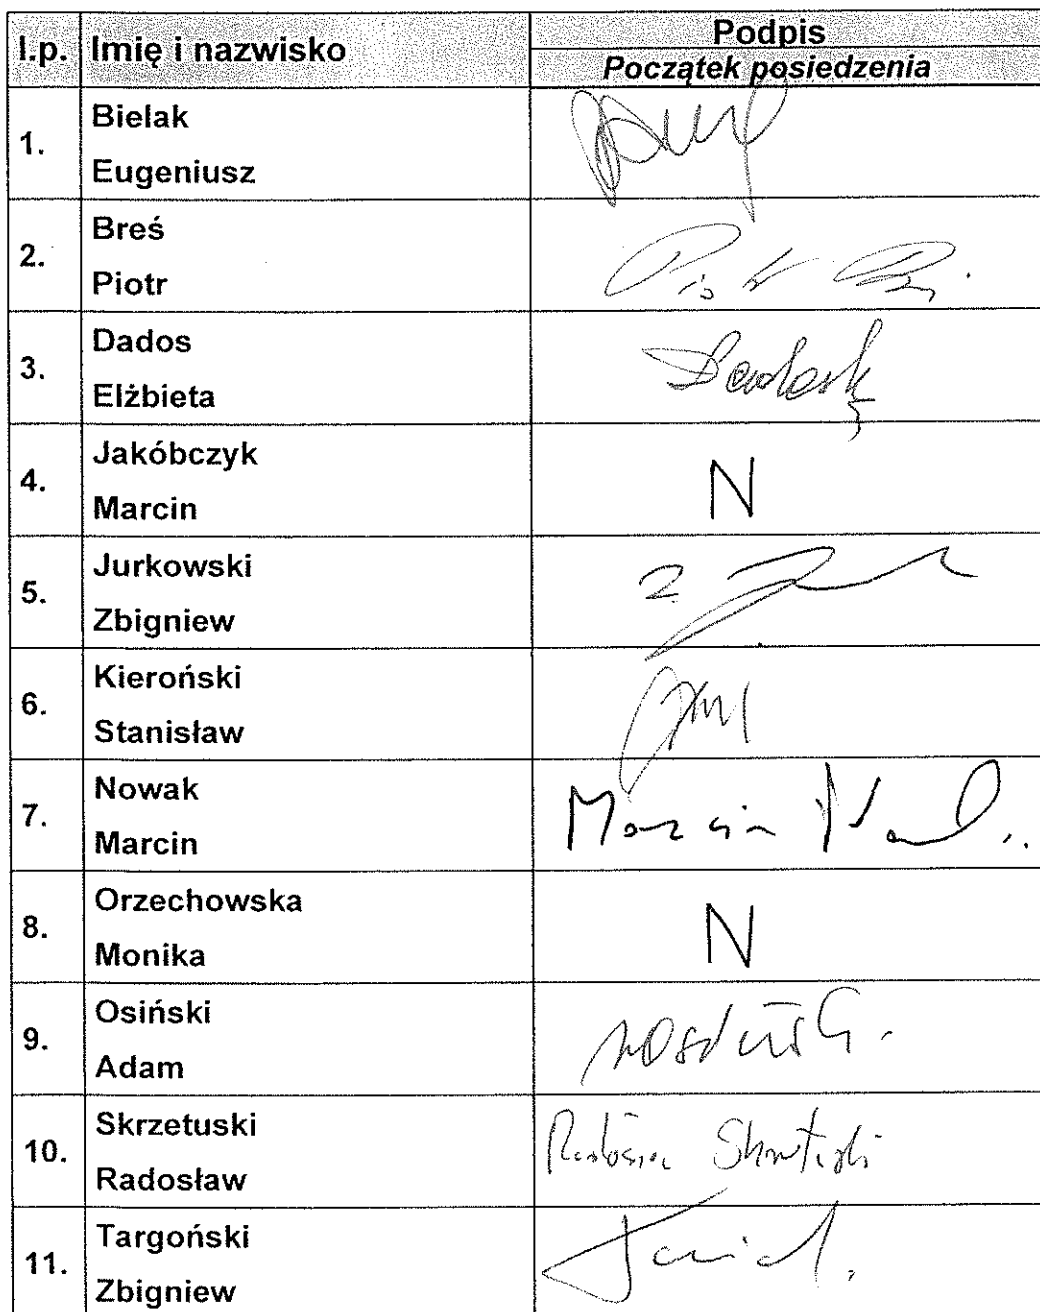 l.p. Imię i nazwisko Podpis
Początek posiedzenia
1. Bielak
Eugeniusz
2. Breś
Piotr
Piotr
3. Dados
Elżbieta
4. Jakóbczyk
Marcin
N
5. Jurkowski
Zbigniew
Z.
6. Kieroński
Stanisław
7. Nowak
Marcin
Marcin Nowak
8. Orzechowska
Monika
N
9. Osiński
Adam
10. Skrzetuski
Radosław
Radosław Skrzetuski
11. Targoński
Zbigniew